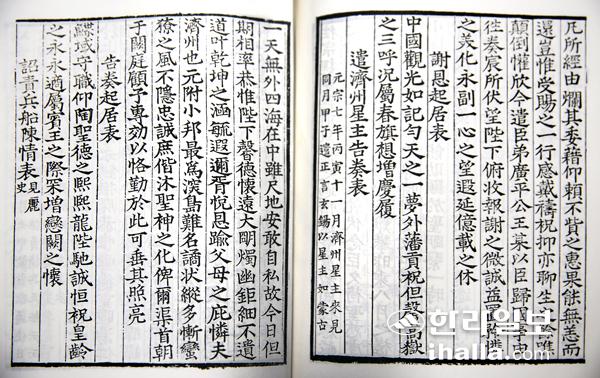 凡所經由爛其委藉仰賴不貲之惠果能無恙而
還豈惟受賜之一行感戴禱祝抑亦聊生之 唯
顛倒懽欣今遣臣弟廣平公王 以臣歸國事由
徃奏宸所伏望陛下俯收報謝之微誠益
之美化永副一心之望遐延億載之休
謝恩起居表
中國觀光如記匀天之一夢外藩貢祝但 高嶽
之三呼况屬春旗想增慶履
遣濟州星主告奏表
元宗七年丙寅十一月濟州星主來見
同月甲子遣正言玄錫以星主如蒙古
一天無外四海在中雖尺地安敢自私故今日但
期相率恭惟陛下馨德懷遠大明燭幽鉅細不遺
道叶乾坤之涵毓遐邇胥悅恩踰父母之庇憐夫
濟州也元附小邦最 溟島難名謫狀縱多慚蠻
獠之風不隱忠誠庶偕沐聖神之化俾爾渠首朝
于闕庭顧予專効以恪勤於此可垂其照亮
告奏起居表
鰈域守職仰陶聖德之熙熙龍陛馳誠恒祝皇齡
之永永適屬賓王之際采增戀闕之懷
詔責兵船陳情表
見麗
史
한라일보
ihalla.com